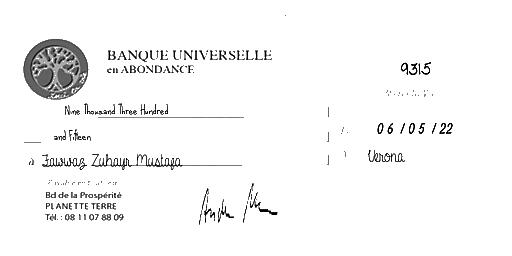 BANQUE UNIVERSELLE
en ABONDANCE
9315
Nine Thousand Three Hundred
and Fifteen
06/05/22
à Fawwaz Zuhayr Mustafa
Verona
Bd de la Prospérité
PLANETTE TERRE
Tél. : 08 11 07 88 09